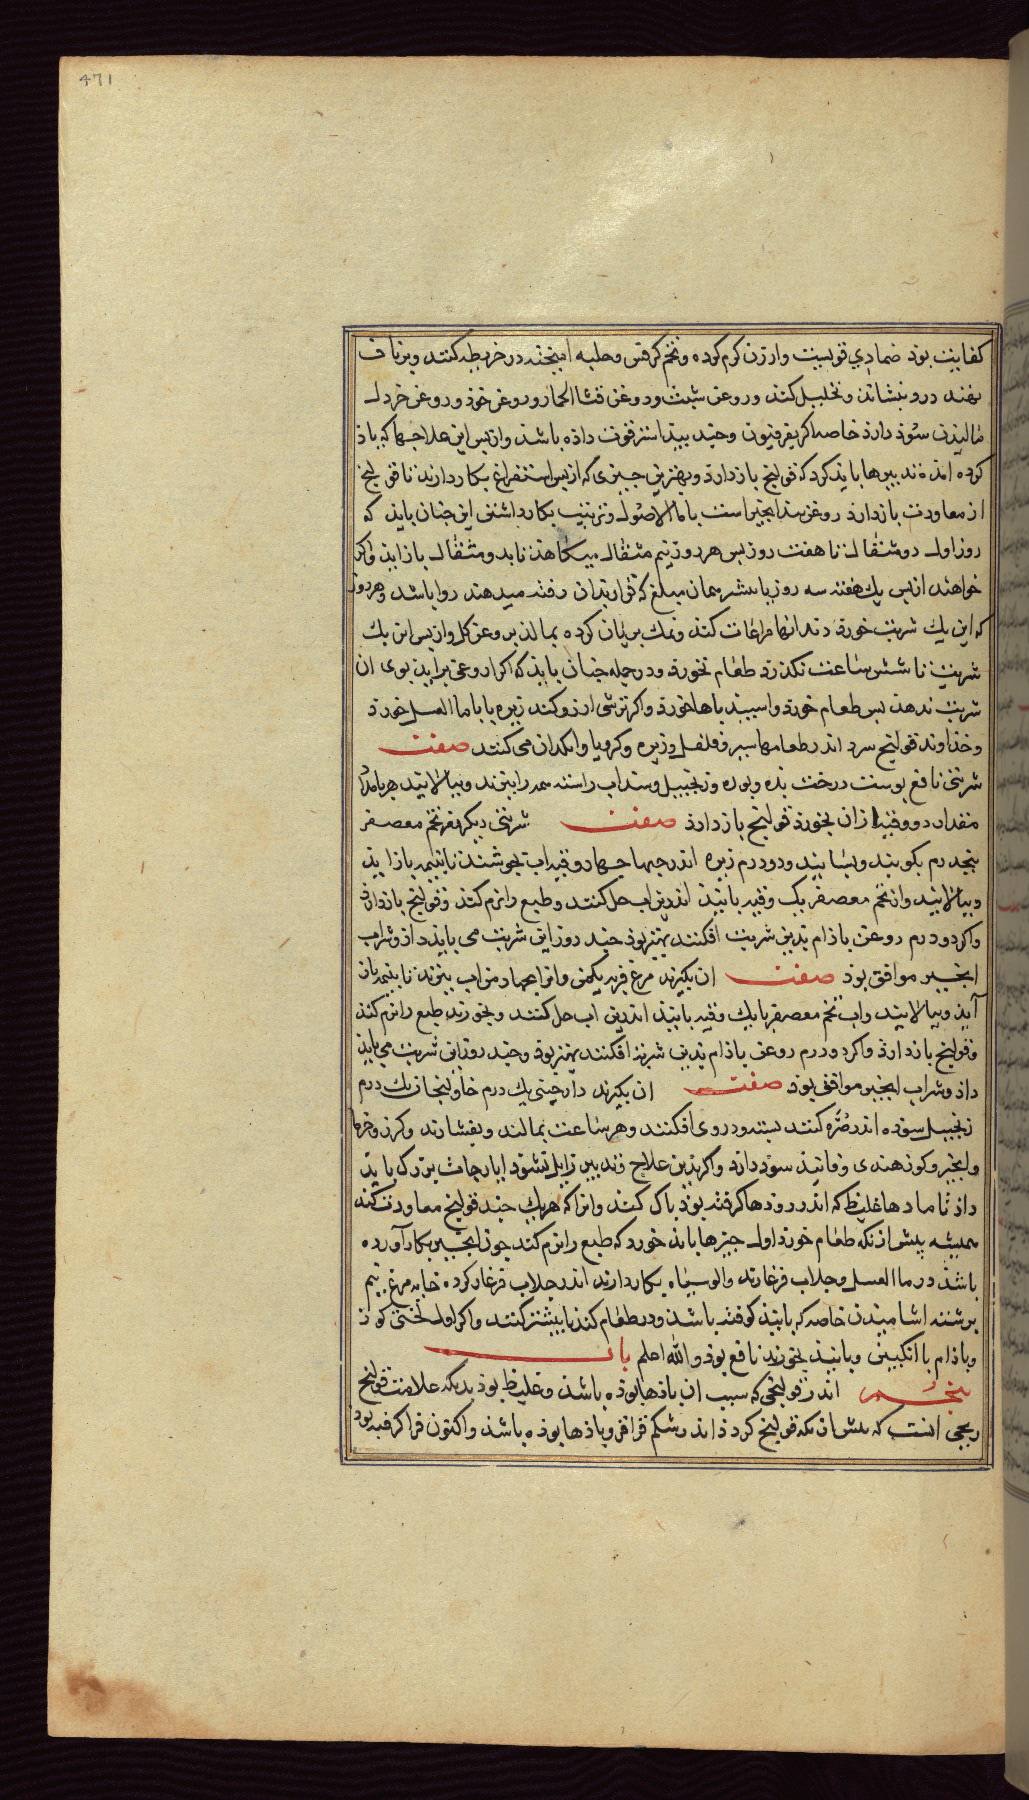 471
کفایت بود ضمادي قویست وارزن کرم کرده وتخم کرفس وحلبه امیخته در خریطه کنند وبر ناف
نهند درد بنشاند وتحلیل کند وروغن شبت وروغن قثاالحمار وروغن خوذ وروغن خردل
مالیدن سوذ دارذ خاصه اکر بفرفیون وجند بیدستر قوت داذه باشند وازپس این علاجها که یاذ
کرده امذ تدبیرها باید کرد که قولنج بازدارذ وبهترین جیزی که ازپس استفراغ بکار دارند تا قولنج
از معاودت بازدارذ روغن بیذانجیر است با ماالاصول وترتیب بکار داشتن این جنان بایذ که
روز اول دو مثقال تا هفت روز پس هر روز نیم مثقال میکاهذ تا بدو مثقال بازایذ واکر
خواهند ازپس یك هفته سه روز یا بیشتر همان مبلغ که قرار بدان رفته میدهند روا باشد وهر روز
که این یك شربت خورد دندانها مراعات کند ونمك بریان کرده بمالذ بروغن کل وازپس این یك
شربت تا شش ساعت نکذرد طعام نخورد ودر جمله جنان بایذ که اکر اروغی برایذ بوی ان
شربت ندهذ پس طعام خورد واسپیدباها خورد واکر ترشی ارزو کند زیره بابا ماالعسل خورد
وخذاوند قولنج سرد اندر طعامها سیر وفلفل وزیره وکرویا وانکدان می کنند صفت
شربتی نافع پوست درخت بذه وبوره وزنجبیل وسداب راسته همه را بپزند وبپالایند هر بامداد
مقدار دو وقیه ازان بخورذ قولنج بازدارذ صفت شربتی دیکر بکیرند تخم معصفر
پنجدرم بکوبند وبسایند ودو درم زیره اندر جهل وجهار وقیه اب بجوشند تا بنیمه بازایذ
وبپالایند واز تخم معصفر یک وقیه بانیذ اندرین اب حل کنند وطبع را نرم کند وقولنج بازدارذ
واکر دو درم روغن باذام بدین شربت افکنند بهتر بوذ جند روز این شربت می بایذ داذ وشراب
انجیر موافق بوذ صفت ان بکیرند مرغ فربه یکمن وانرا بجهار من اب بپزند تا بنیمه باز
آیذ وبپالایند واب تخم معصفر با یك وقیه بانیذ اندرین اب حل کنند وبخورند طبع را نرم کند
وقولنج بازدارذ واکر دو درم روغن باذام بدین شربت افکنند بهتر بوذ وجند روز این شربت می بایذ
داذ وشراب انجیر موافق بوذ صفت ان بکیرند دارجینی یك درم خاولنجان یك درم
زنجبیل سوده اندر صُرّه کنند بسته ودروی افکنند وهر ساعت بمالند وبفشارند وکرز وخرما
وانجیر وکوز هندی وفانیذ سوذ دارذ واکر بدین علاج وتدبیر زایل نشوذ ایارجات بزرك بایذ
داذ تا مادهاغلیظ که اندر رودها کرفته بوذ پاك کند وانرا که هر یك جند قولنج معاودت کند
همیشه پیش ازنکه طعام خورد اول جیزها بایذ خورد که طبع را نرم کند جون انجیر بکار آورده
باشذ در ماالعسل وجلاب فرغارند والوسیاه بکار دارند اندر جلاب فرغار کرده خایه مرغ نیم
برشته اشامیدن خاصه که بانیذ کوفته باشد ودر طعام کندنا بیشتر کنند واکر اول لختی کوز
وباذام باانکبین وبانیذ بخورند نافع بوذ والله اعلم باب
پنجم اندر قولنجی که سبب ان باذهابوذه باشد وغلیظ بوذ بدانکه علامت قولنج
ریحی انست که پیش ازنکه قولنج کرد ذاند رشکم قراقر وباذها بوذه باشد واکنون فراکرفته بود